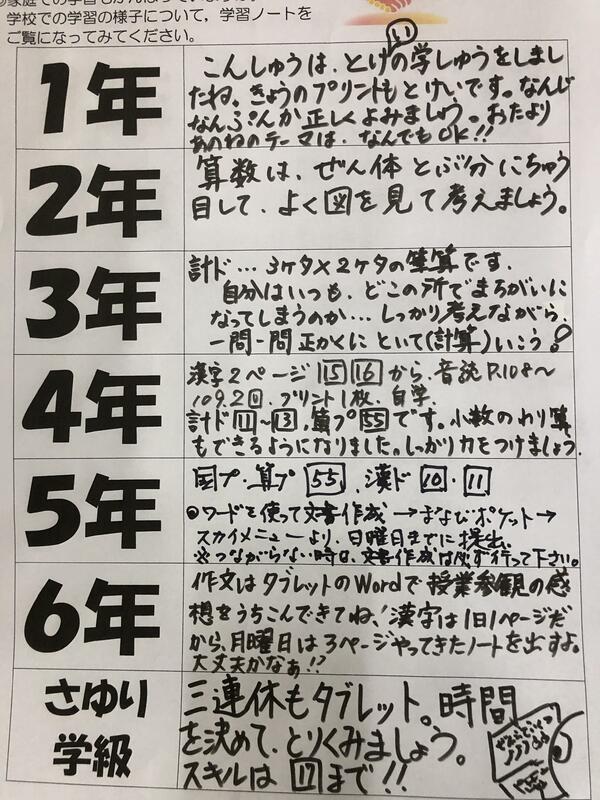 学校での学習の様子について，学習ノートを
ご覧になってみてください。
1年
こんしゅうは、とけいの学しゅうをしまし
たね。きょうのプリントもとけいです。なんじ
なんぷんか正しくよみましょう。おたより
あのねのテーマは、なんでもOK!!
2年
算数は、ぜん体とぶ分にちゅう
目して、よく図を見て考えましょう。
3年
計ド…3ケタ×2ケタの筆算です.
自分はいつも、どこの所でまちがいに
なってしまうのか…しっかり考えながら、
一問一問正かくにといて(計算)いこう!
4年
漢字2ページ 15 16 から、音読P.108～
109.2回.プリント1枚.自学.
計ド11～13.算プ55です。小数のわり算
もできるようになりました。しっかり力をつけましょう.
5年
国プ・算プ 55 、漢ド 10・11
●ワードを使って文書作成→まなびポケット→
スカイメニューより、日曜日までに提出.
※つながらない時も、文書作成は必ず行って下さい。
6年
作文はタブレットのWordで授業参観の感
想をうちこんできてね!漢字は1日1ページだ
から、月曜日は3ページやってきたノートを出すよ。
大丈夫かなぁ!?
さゆり
学級
三連休もタブレット。時間
を決めて、とりくみましょう。
スキルは 17 まで!!